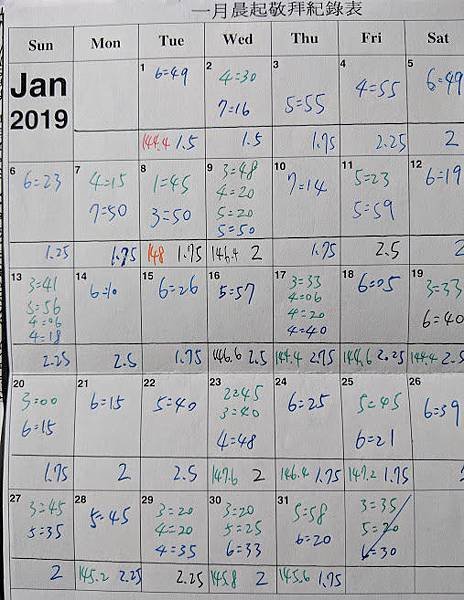 一月晨起敬拜紀錄表
Sun Mon Tue Wed Thu Fri Sat
Jan
2019
1 2 3 4 5
6=49 4=30 5=55 4=55 6=49
7=16
144.4 1.5 1.5 1.75 2.25 2
6 7 8 9 10 11 12
6=23 4=15 1=45 3=48 7=14 5=23 6=19
7=50 3=50 4=20 5=59
5=20
5=50
1.25 1.75 148 1.75 146.4 2 1.75 2.5 2
13 14 15 16 17 18 19
3=41 6=10 6=26 5=57 3=33 6=05 3=33
3=56 4=06 6=40
4=06 4=20
4=18 4=40
2.25 2.5 1.75 146.6 2.5 144.4 2.75 144.6 2.25 144.4 2.5
20 21 22 23 24 25 26
3=00 6=15 5=40 2=45 6=25 5=45 6=39
6=15 3=40 6=21
4=48
1.75 2 2.5 147.6 2 146.4 1.75 147.2 1.75
27 28 29 30 31
3=45 5=45 3=20 3=20 5=58 3=35
5=35 4=20 5=25 6=20 5=20
4=35 6=33 6=30
2 145.2 2.25 2.25 145.8 2 145.6 1.75